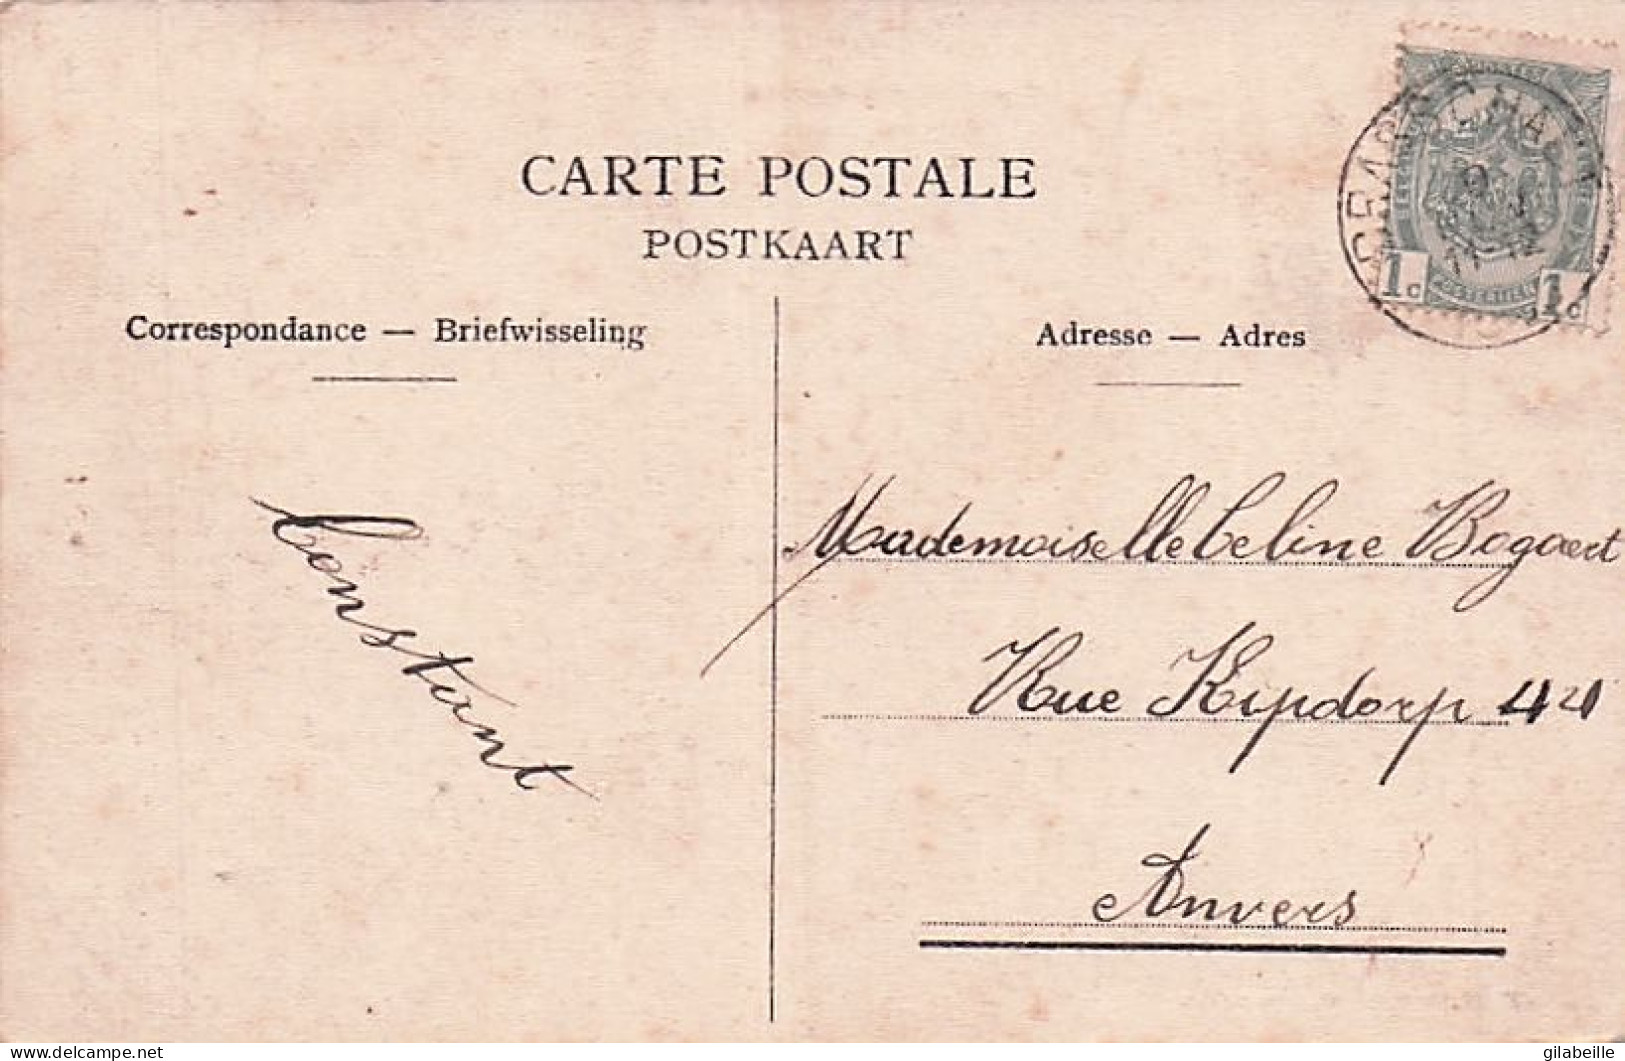 CARTE POSTALE
POSTKAART
Correspondance — Briefwisseling
Adresse — Adres
1c 1c
Constant
Mademoiselle Celine Bogaert
Rue Kipdorp 44
Anvers
delcampe.net
gilabeille